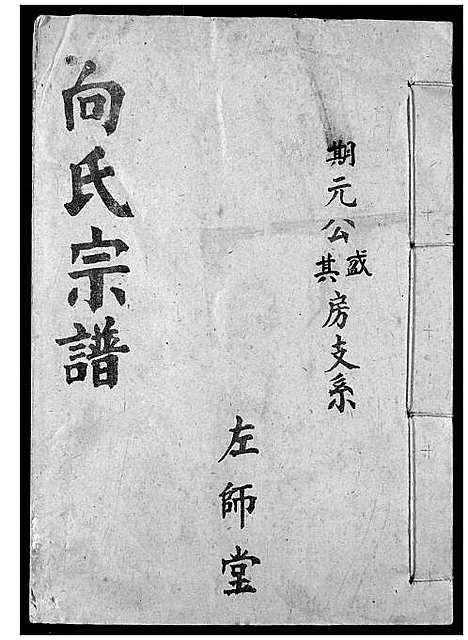 期元公盛其房支系
左師堂
向氏宗譜